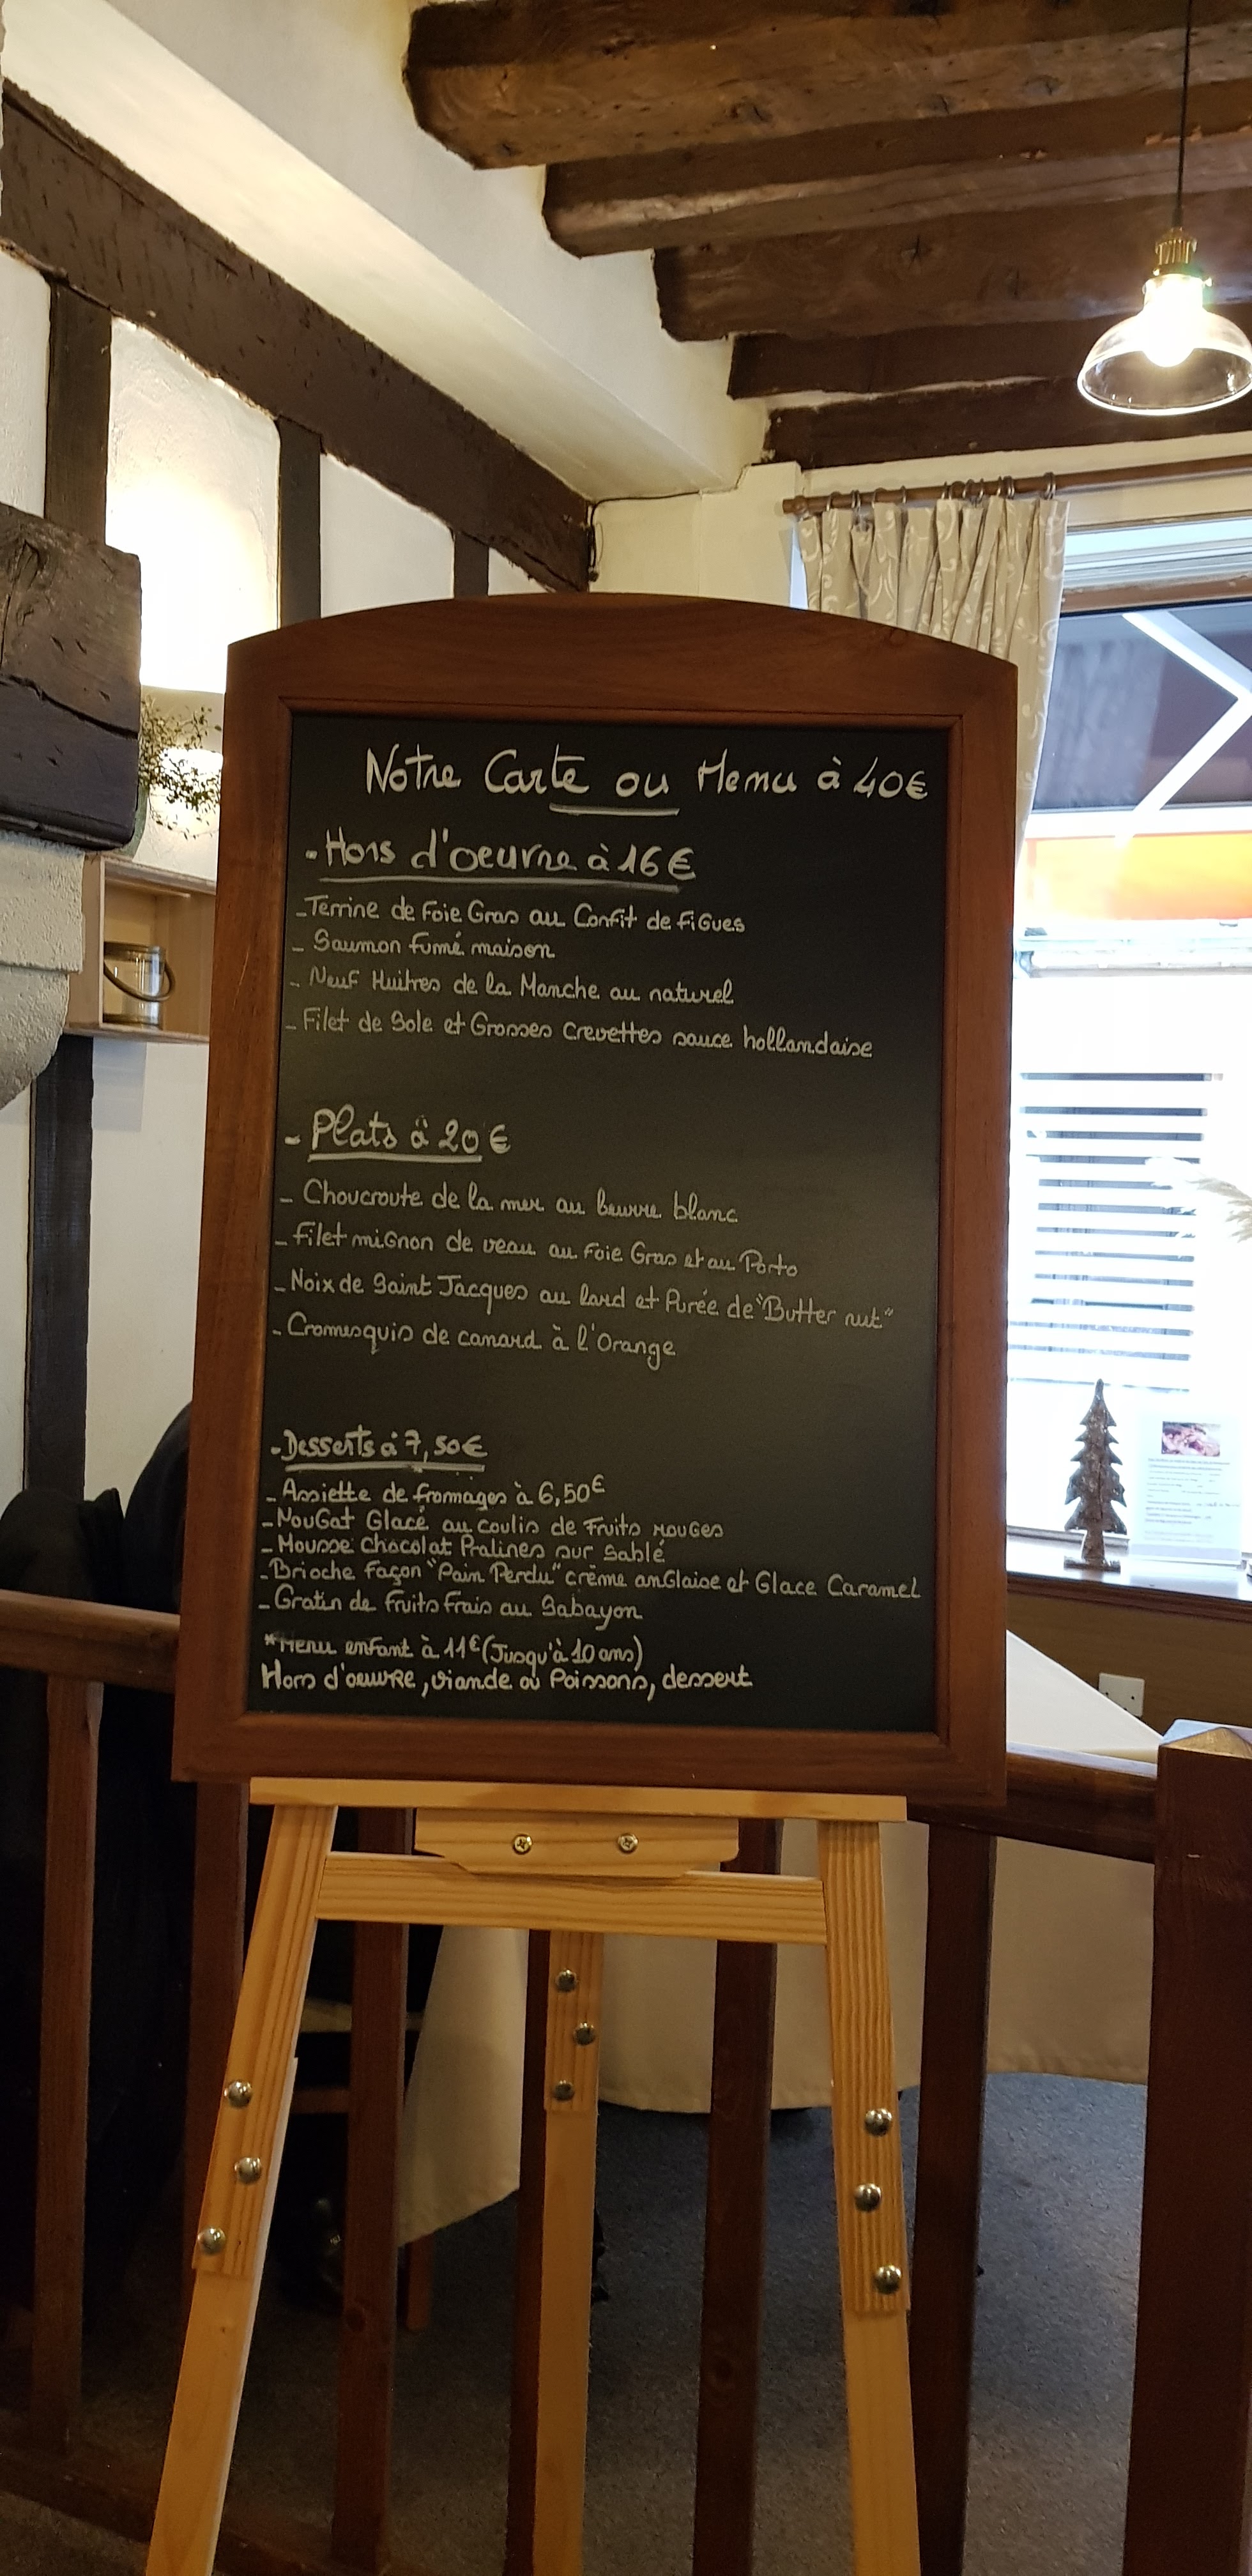 Notre Carte ou Menu à 40€
- Hors d'oeuvre à 16€
- Terrine de Foie Gras au Confit de Figues
- Saumon fumé maison
- Neuf Huitres de la Manche au naturel
- Filet de Sole et Grosses Crevettes sauce hollandaise
- Plats à 20€
- Choucroute de la mer au beurre blanc
- Filet mignon de veau au Foie Gras et au Porto
- Noix de Saint Jacques au lard et Purée de "Butter nut"
- Cromesquis de canard à l'Orange
- Desserts à 7,50€
- Assiette de fromages à 6,50€
- Nougat Glacé au coulis de Fruits rouges
- Mousse Chocolat Pralines sur Sablé
- Brioche façon "Pain Perdu" crème anglaise et Glace Caramel
- Gratin de fruits Frais au Sabayon
*Menu enfant à 11€ (Jusqu'à 10 ans)
Hors d'oeuvre, viande ou Poissons, dessert